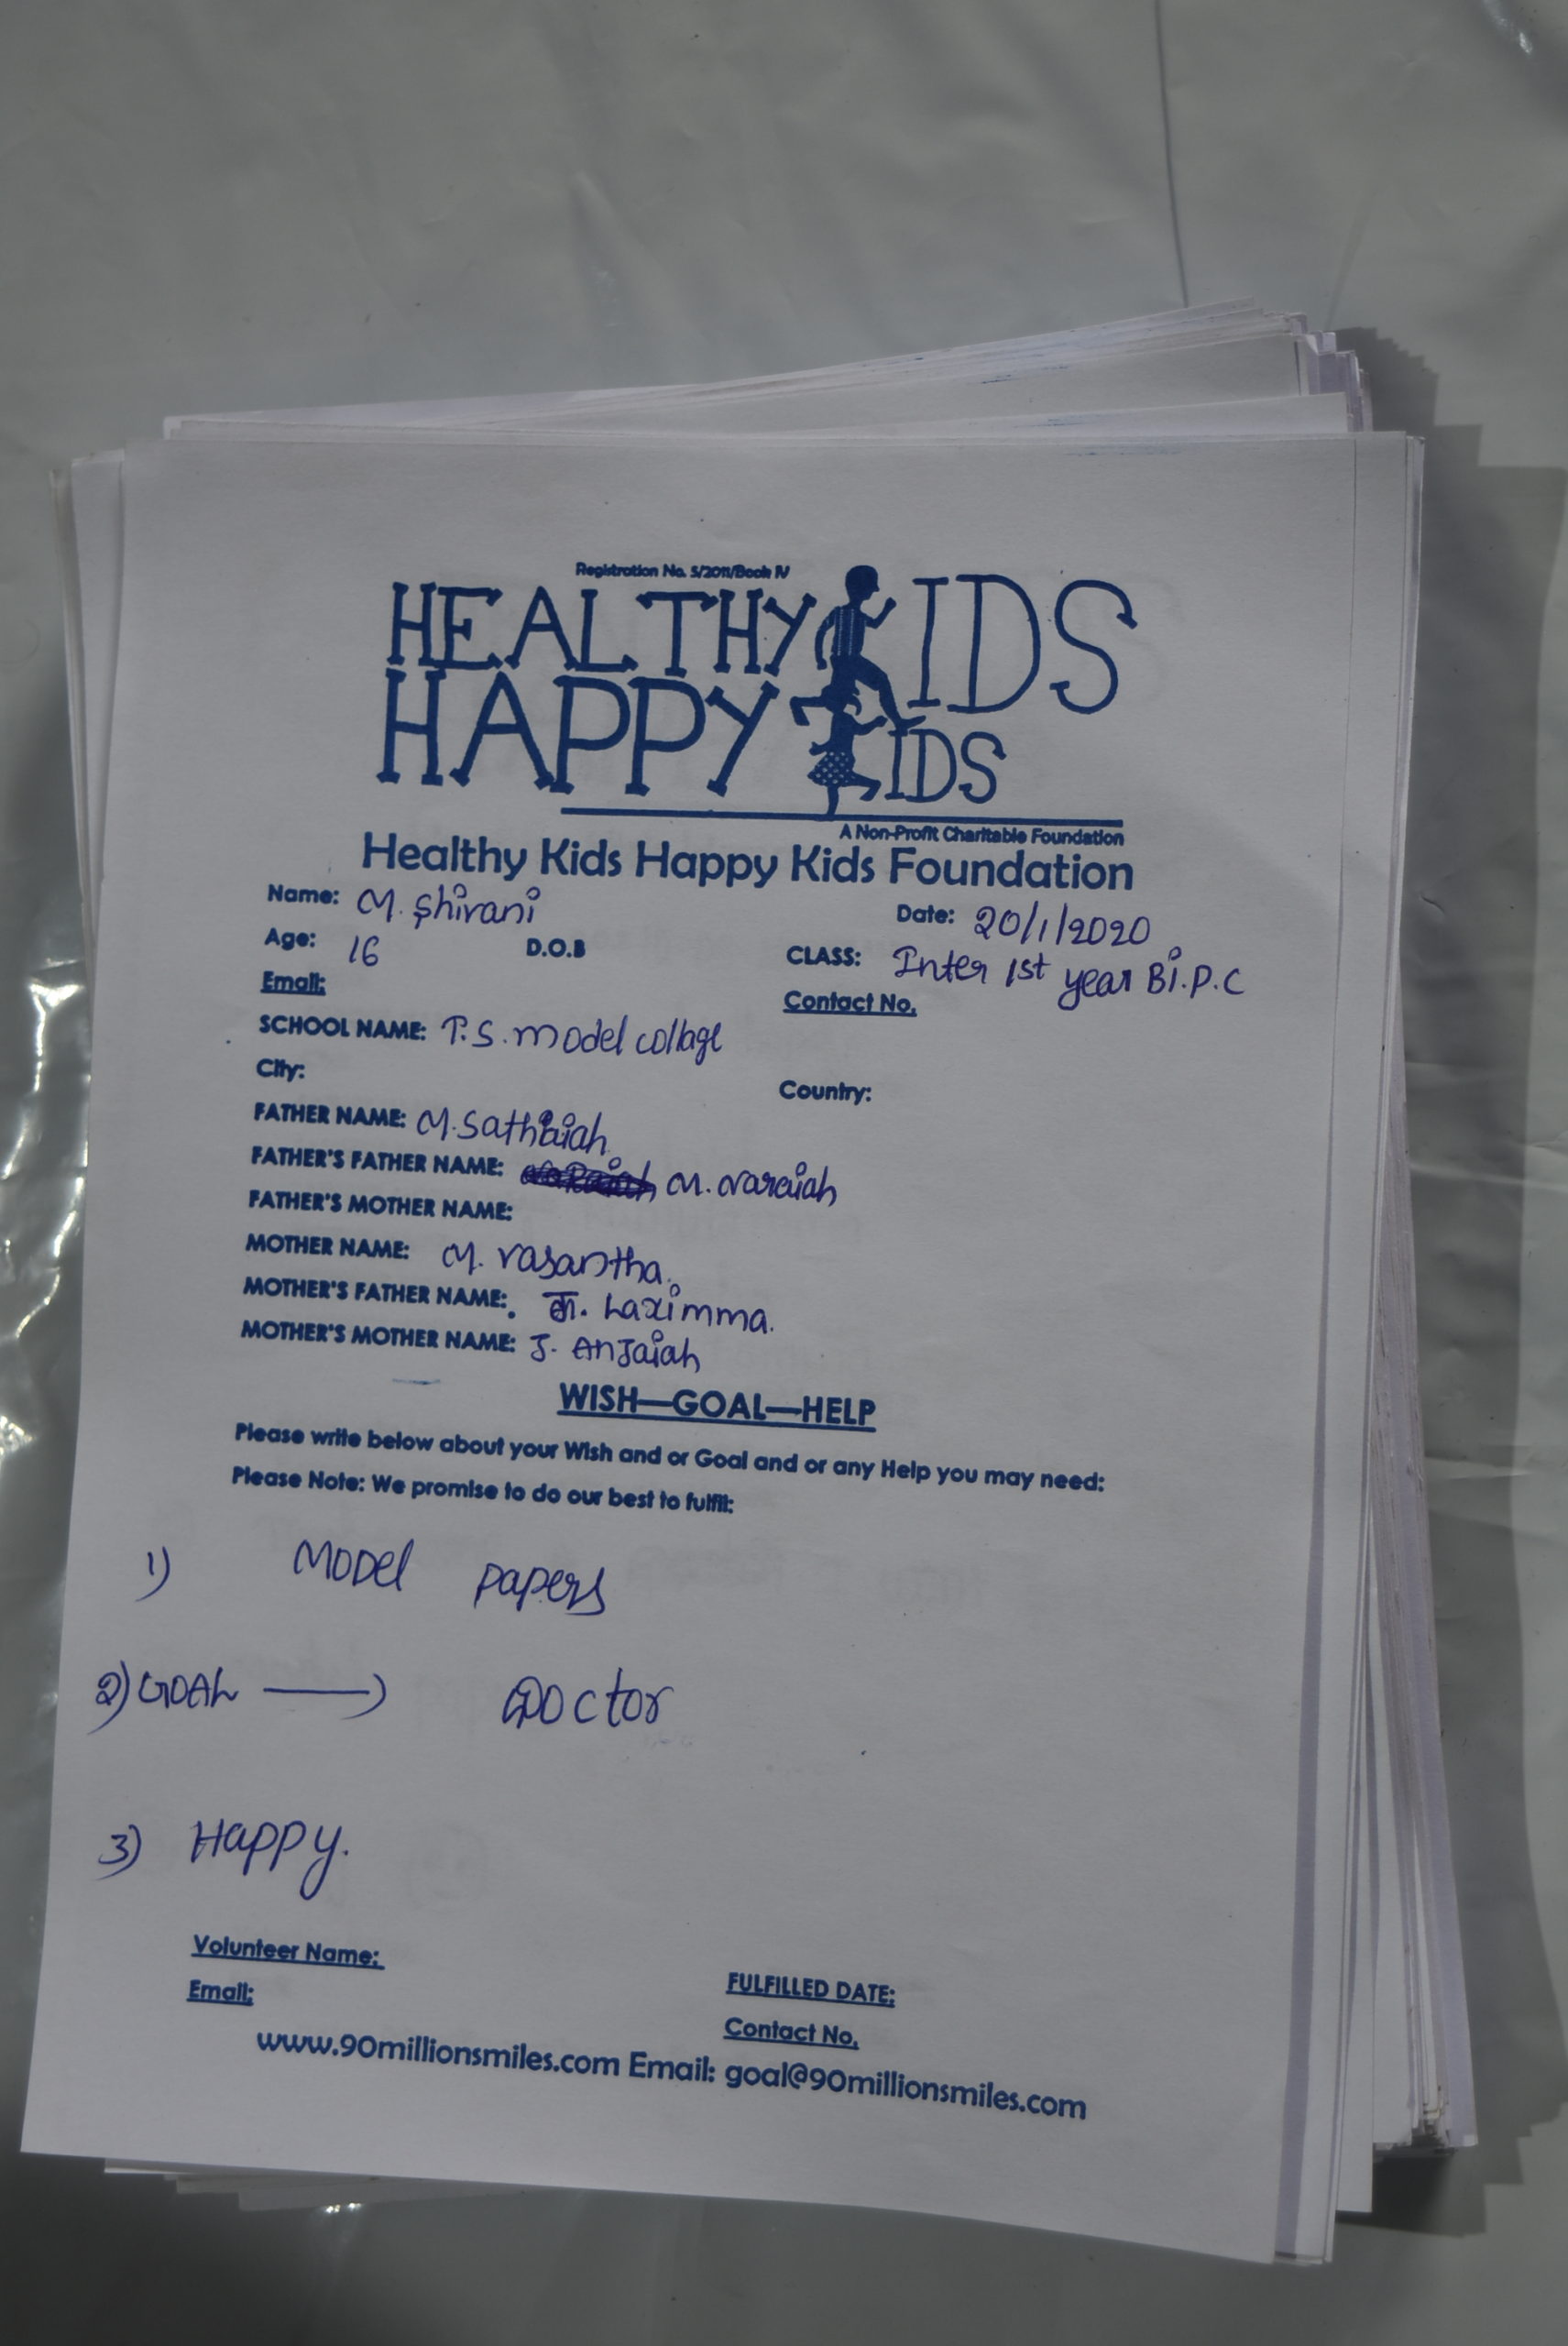 Registration No. 5/2011/Book IV
HEALTHY KIDS
HAPPY KIDS
A Non-Profit Charitable Foundation
Healthy Kids Happy Kids Foundation
Name: M. Shivani Date: 20/1/2020
Age: 16 D.O.B CLASS: Inter 1st year Bi.P.C
Email: Contact No.
SCHOOL NAME: T.S. model collage
City: Country:
FATHER NAME: M. Sathaiah
FATHER'S FATHER NAME: M. Naraiah
FATHER'S MOTHER NAME:
MOTHER NAME: M. vasantha.
MOTHER'S FATHER NAME: J. Laximma.
MOTHER'S MOTHER NAME: J. Anjaiah
WISH—GOAL—HELP
Please write below about your Wish and or Goal and or any Help you may need:
Please Note: We promise to do our best to fulfil:
1) Model papers
2) GOAL → Doctor
3) Happy.
Volunteer Name: FULFILLED DATE:
Email: Contact No.
www.90millionsmiles.com Email: goal@90millionsmiles.com